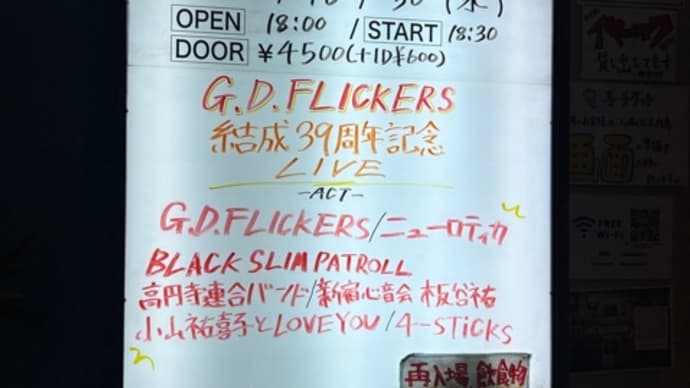 30(水)
OPEN 18:00 / START 18:30
DOOR ¥4500(+1D¥600)
G.D.FLICKERS
結成39周年記念
LIVE
-ACT-
G.D.FLICKERS/ニューロティカ
BLACK SLIM PATROLL
高円寺連合バンド/新宿心音会 板谷祐
小山祐喜子とLOVE YOU/4-STiCKS
再入場 飲食物
FREE
Wi-Fi